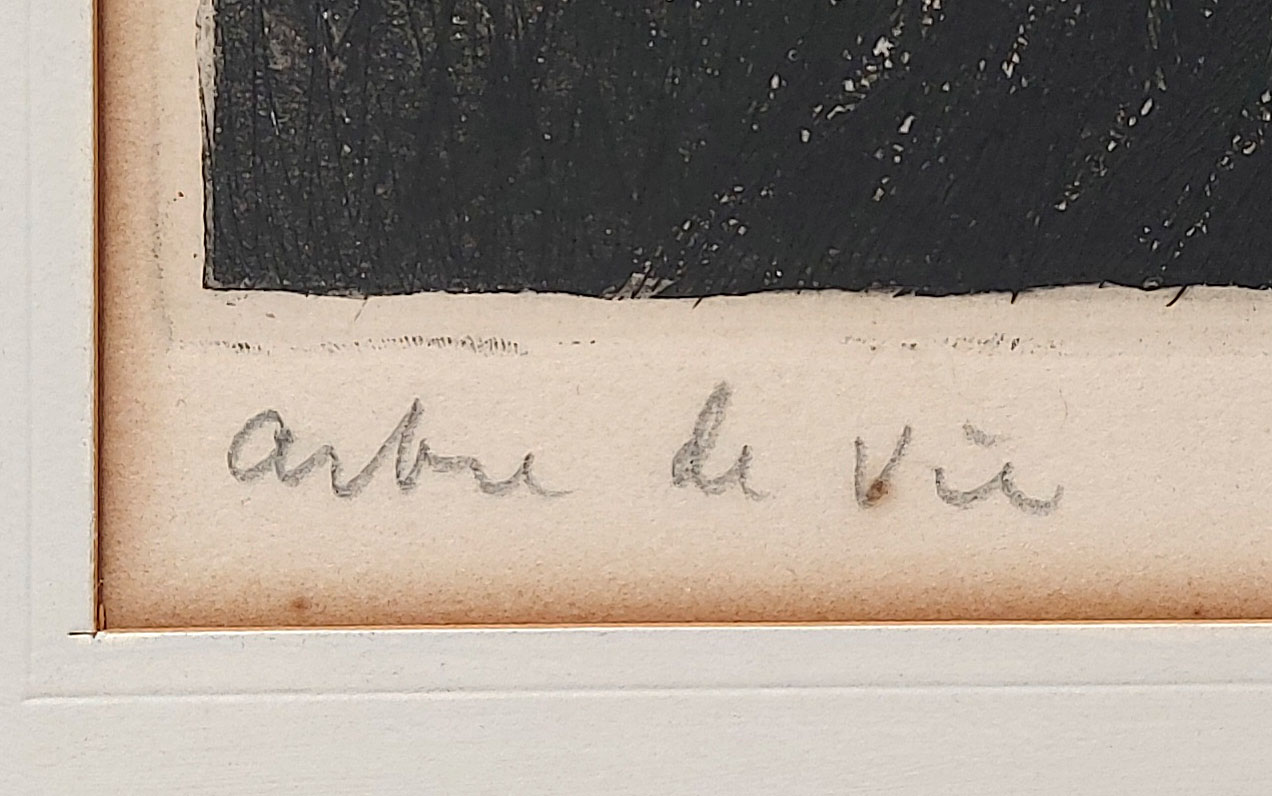 arbre de vie